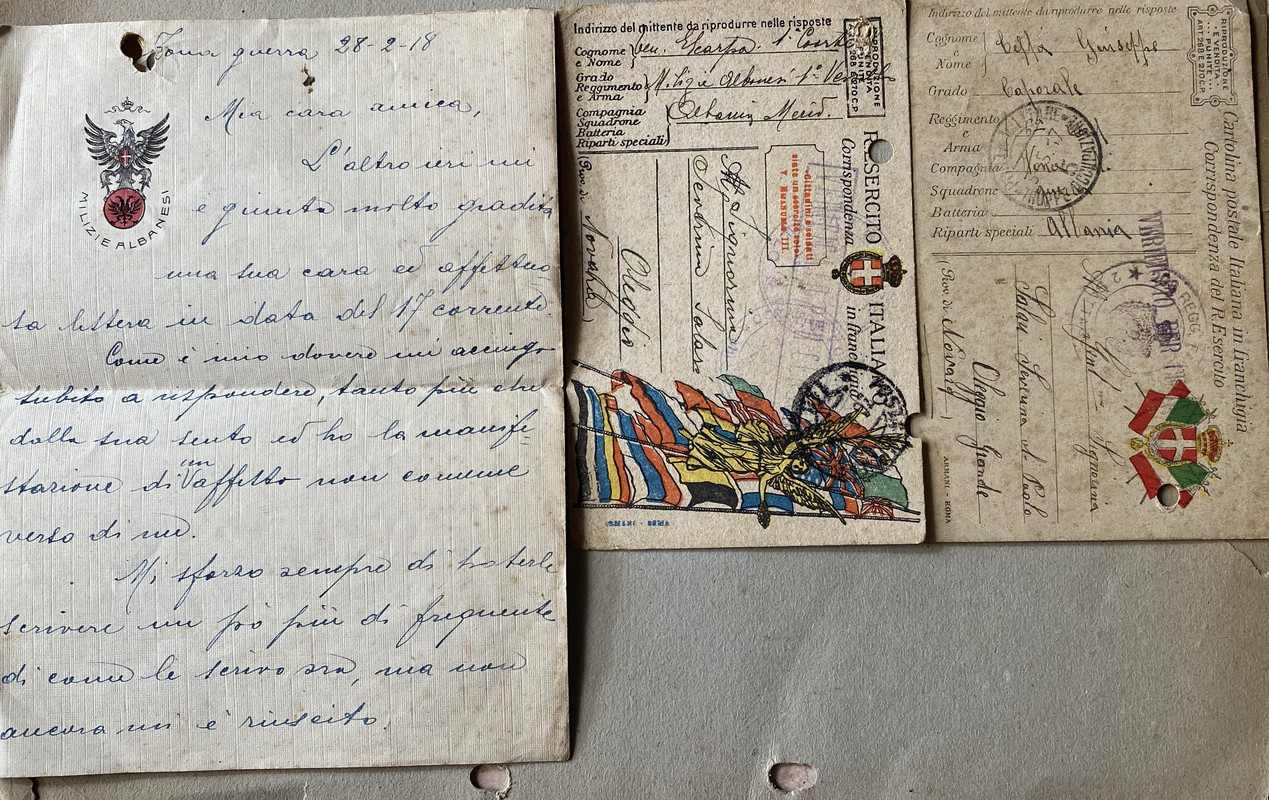 Zona guerra 28-2-18
Mia cara amica,
MILIZIE ALBANESI
L'altro ieri mi
è giunta molto gradita
una sua cara ed affettuo
sa lettera in data del 17 corrente.
Come è mio dovere mi accingo
subito a rispondere, tanto più che
dalla sua sento ed ho la manife
stazione di un affetto non comune
verso di me.
Mi sforzo sempre di poterle
scrivere un pò più di frequente
di come le scrivo ora, ma non
ancora mi è riuscito.
Indirizzo del mittente da riprodurre nelle risposte
Cognome e Nome } Scarpa
Grado Reggimento e Arma } Milizie Albanesi 1°
Compagnia Squadrone Batteria Riparti speciali } Albania Merid.
RIPRODUZIONE E VENDITA PUNITE ART. 268 E 270 C.P.
R. ESERCITO ITALIANO
Corrispondenza in franchigia
«Cittadini e soldati
siate un esercito solo»
V. EMANUELE III
Signorina
Oleggio
(Prov. di Novara)
ARMANI - ROMA
Indirizzo del mittente da riprodurre nelle risposte
Cognome e Nome } Giuseppe
Grado Caporale
Reggimento e Arma
Compagnia
Squadrone
Batteria
Riparti speciali Albania
RIPRODUZIONE E VENDITA PUNITE ART. 268 E 270 C.P.
Cartolina postale Italiana in franchigia
Corrispondenza del R. Esercito
Signorina
Oleggio Grande
(Prov. di Novara)
ARMANI - ROMA